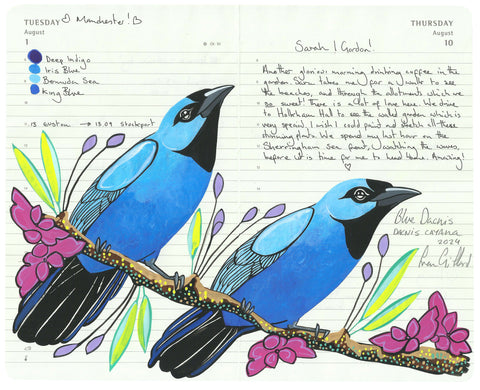 TUESDAY
August
1
Manchester!
Deep Indigo
Iris Blue
Bermuda Sea
King Blue
13. Euston → 15.09 Stockport
THURSDAY
August
10
Sarah / Gordon!
Another glorious morning drinking coffee in the
garden. Sara takes me for a walk to see
the beaches, and through the allotments which are
so sweet! There is a lot of love here. We drive
to Holkham Hall to see the walled garden which is
very special. I wish I could paint and sketch all these
stunning plants. We spend my last hour on the
Sherringham Sea front, watching the waves,
before it is time for me to head home. Amazing!
Blue Dacnis
DACNIS CAYANA
2024